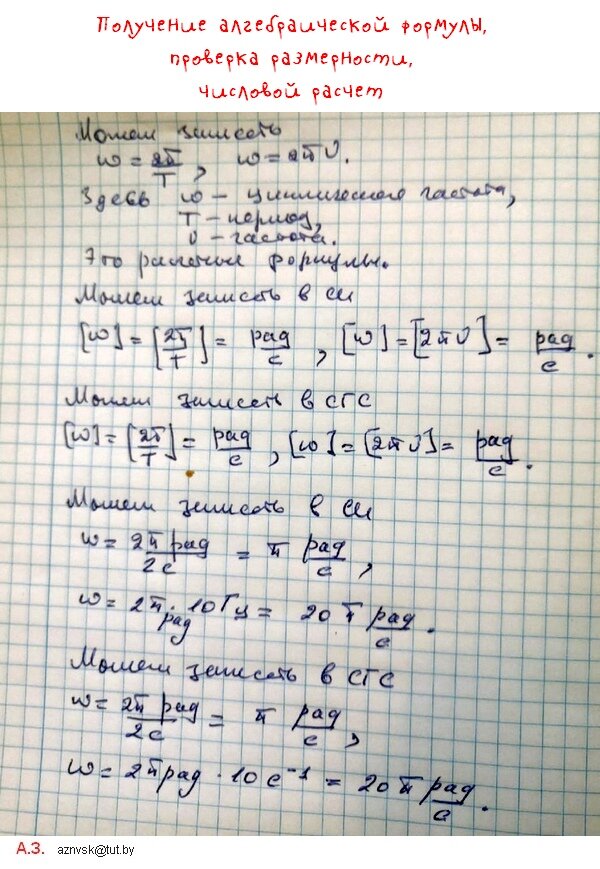 Получение алгебраической формулы,
проверка размерности,
числовой расчет
Можем записать
ω = 2π/T, ω = 2πν.
Здесь ω – циклическая частота,
T – период,
ν – частота.
Это расчетные формулы.
Можем записать в СИ
[ω] = [2π/T] = рад/с, [ω] = [2πν] = рад/с.
Можем записать в СГС
[ω] = [2π/T] = рад/с, [ω] = [2πν] = рад/с.
Можем записать в СИ
ω = 2π рад/2с = π рад/с,
ω = 2π рад · 10 Гц = 20π рад/с.
Можем записать в СГС
ω = 2π рад/2с = π рад/с,
ω = 2π рад · 10 с⁻¹ = 20π рад/с.
А.З. aznvsk@tut.by